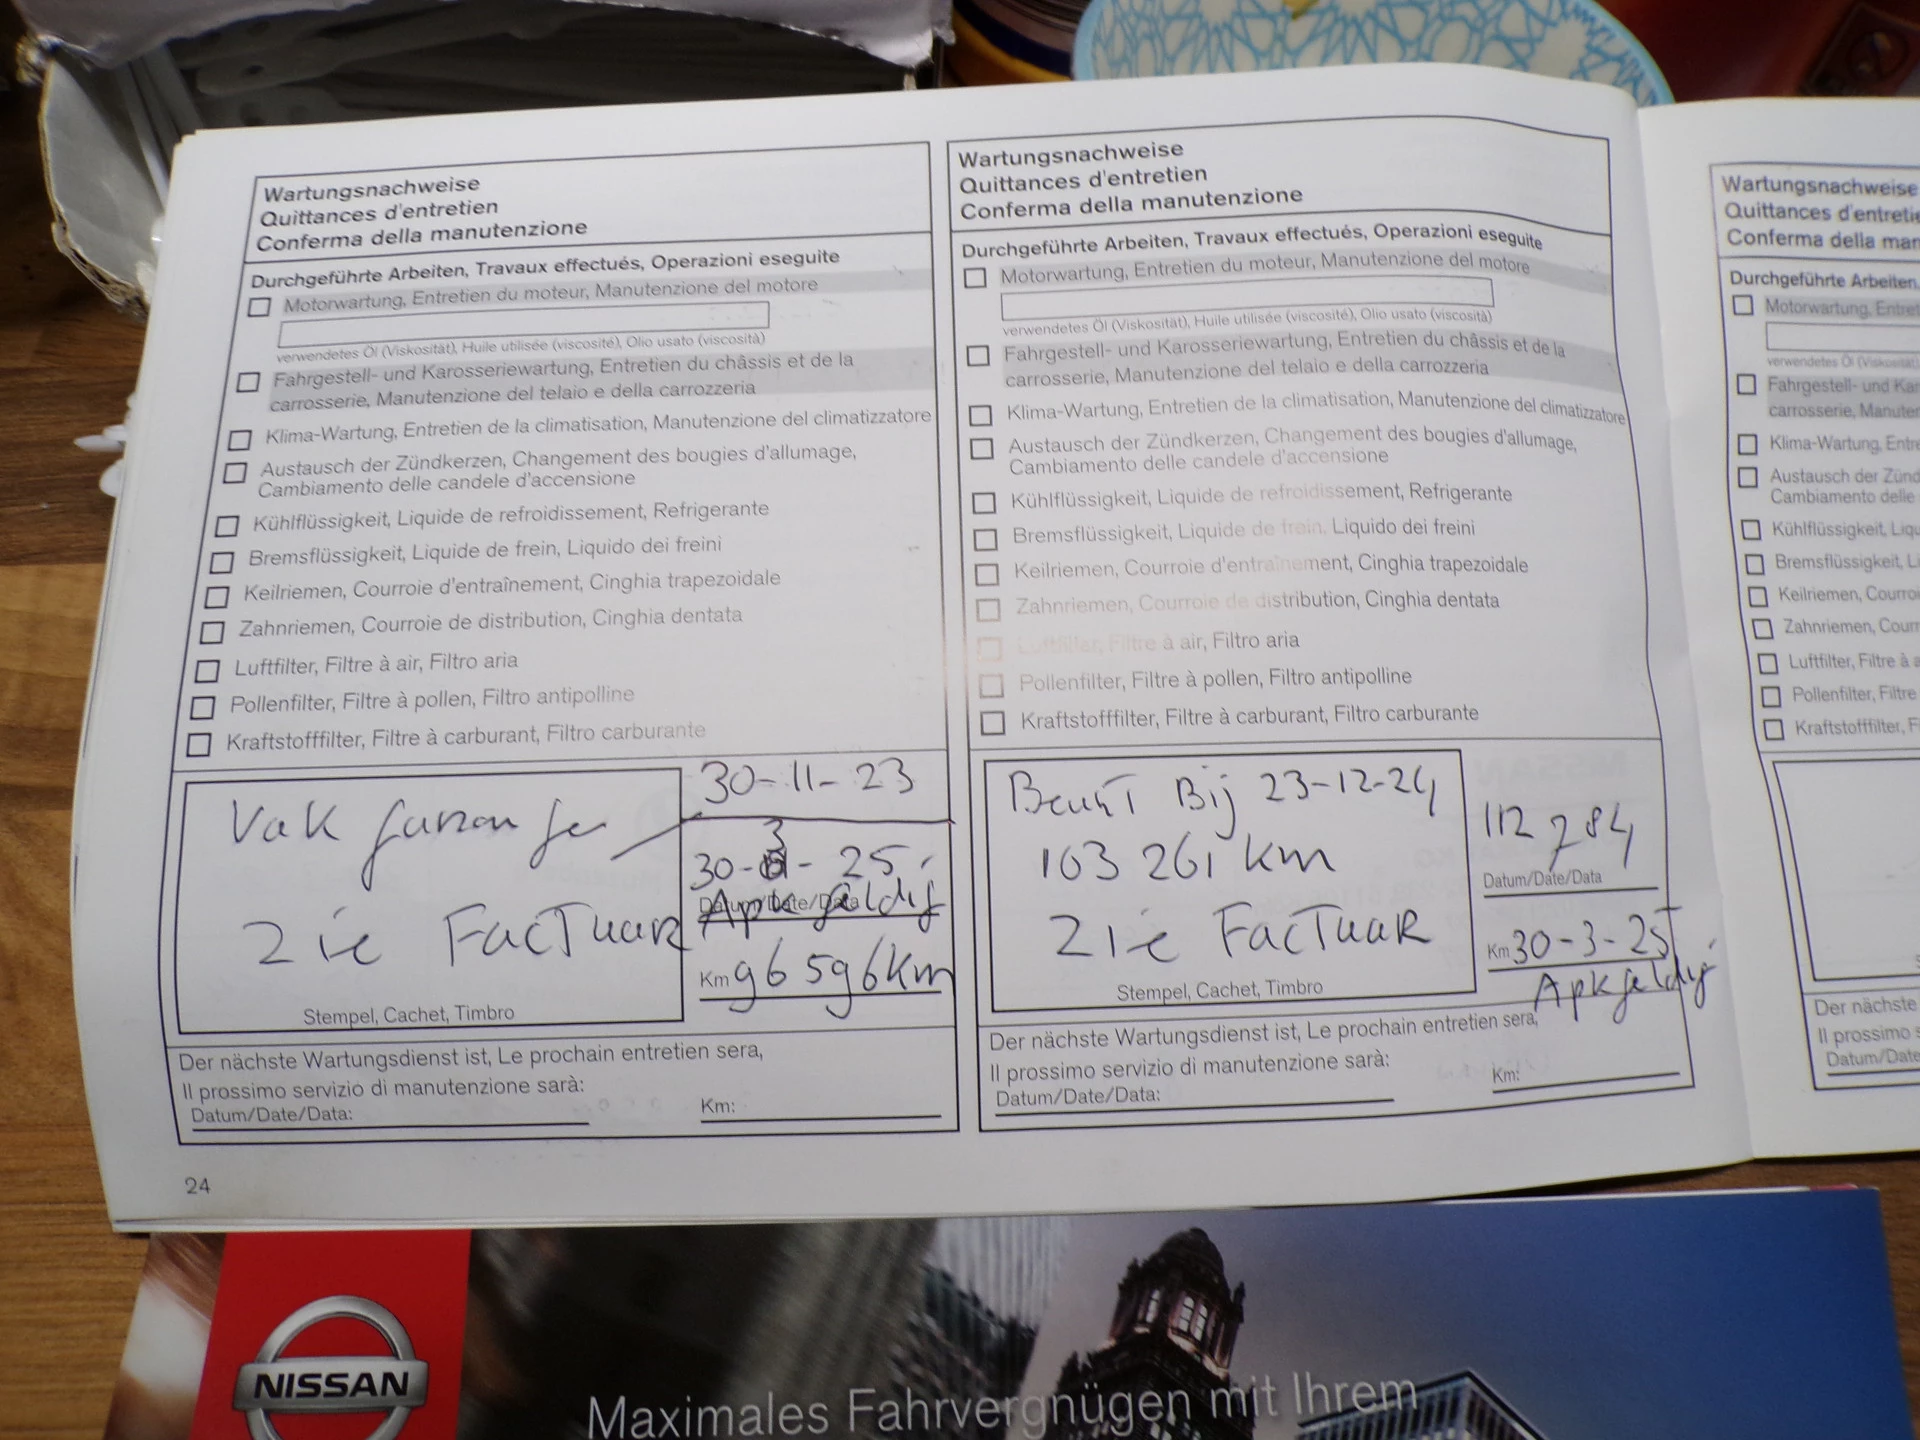 Wartungsnachweise
Quittances d'entretien
Conferma della manutenzione
Durchgeführte Arbeiten, Travaux effectués, Operazioni eseguite
Motorwartung, Entretien du moteur, Manutenzione del motore
verwendetes Öl (Viskosität), Huile utilisée (viscosité), Olio usato (viscosità)
Fahrgestell- und Karosseriewartung, Entretien du châssis et de la
carrosserie, Manutenzione del telaio e della carrozzeria
Klima-Wartung, Entretien de la climatisation, Manutenzione del climatizzatore
Austausch der Zündkerzen, Changement des bougies d'allumage,
Cambiamento delle candele d'accensione
Kühlflüssigkeit, Liquide de refroidissement, Refrigerante
Bremsflüssigkeit, Liquide de frein, Liquido dei freini
Keilriemen, Courroie d'entraînement, Cinghia trapezoidale
Zahnriemen, Courroie de distribution, Cinghia dentata
Luftfilter, Filtre à air, Filtro aria
Pollenfilter, Filtre à pollen, Filtro antipolline
Kraftstofffilter, Filtre à carburant, Filtro carburante
30-11-23
Vak
30-3-25
Datum/Date/Data
Apk geldig
Zie FacTuaR
Km 96 596 km
Stempel, Cachet, Timbro
Der nächste Wartungsdienst ist, Le prochain entretien sera,
Il prossimo servizio di manutenzione sarà:
Datum/Date/Data:
Km:
24
Wartungsnachweise
Quittances d'entretien
Conferma della manutenzione
Durchgeführte Arbeiten, Travaux effectués, Operazioni eseguite
Motorwartung, Entretien du moteur, Manutenzione del motore
verwendetes Öl (Viskosität), Huile utilisée (viscosité), Olio usato (viscosità)
Fahrgestell- und Karosseriewartung, Entretien du châssis et de la
carrosserie, Manutenzione del telaio e della carrozzeria
Klima-Wartung, Entretien de la climatisation, Manutenzione del climatizzatore
Austausch der Zündkerzen, Changement des bougies d'allumage,
Cambiamento delle candele d'accensione
Kühlflüssigkeit, Liquide de refroidissement, Refrigerante
Bremsflüssigkeit, Liquide de frein, Liquido dei freini
Keilriemen, Courroie d'entraînement, Cinghia trapezoidale
Zahnriemen, Courroie de distribution, Cinghia dentata
Luftfilter, Filtre à air, Filtro aria
Pollenfilter, Filtre à pollen, Filtro antipolline
Kraftstofffilter, Filtre à carburant, Filtro carburante
Beurt Bij 23-12-24
112 784
103 261 km
Datum/Date/Data
Zie FacTuaR
Km 30-3-25
Apk geldig
Stempel, Cachet, Timbro
Der nächste Wartungsdienst ist, Le prochain entretien sera,
Il prossimo servizio di manutenzione sarà:
Datum/Date/Data:
Km:
Wartungsnachweise
Quittances d'entretie
Conferma della man
Durchgeführte Arbeiten,
Motorwartung, Entret
verwendetes Öl (Viskosität),
Fahrgestell- und Kar
carrosserie, Manuten
Klima-Wartung, Entre
Austausch der Zünd
Cambiamento delle
Kühlflüssigkeit, Liqu
Bremsflüssigkeit, Li
Keilriemen, Courroi
Zahnriemen, Courr
Luftfilter, Filtre à a
Pollenfilter, Filtre
Kraftstofffilter, F
Der nächste
Il prossimo s
Datum/Date
NISSAN
Maximales Fahrvergnügen mit Ihrem